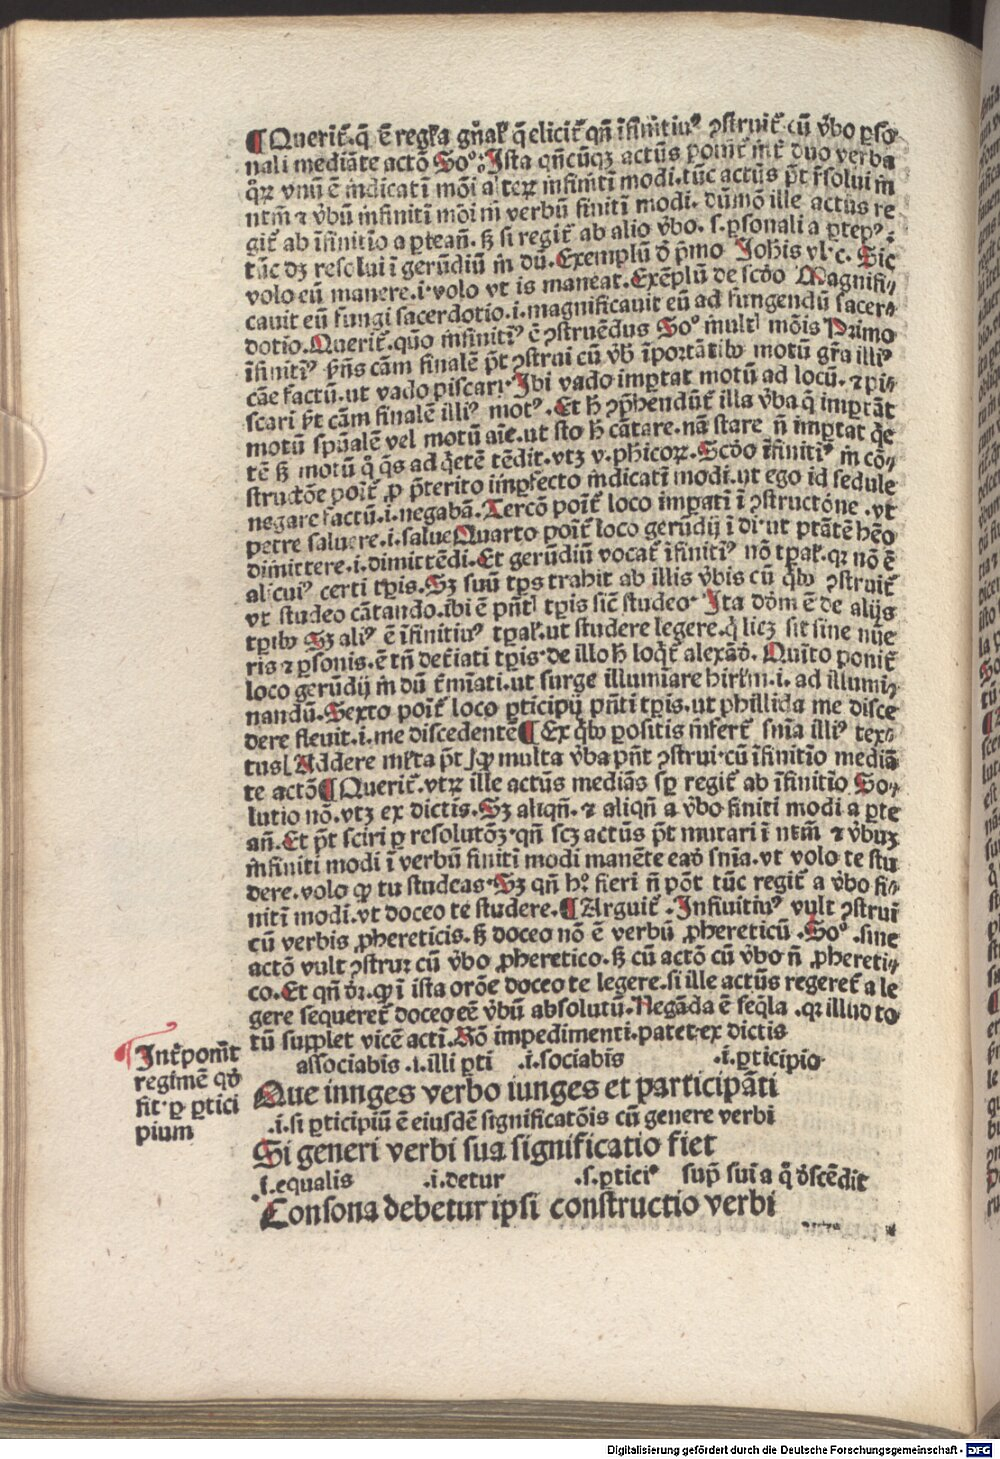 ¶ Querit᷑.q̄ ē regl̓a gn̄al̓ q̄ elicit᷑ qn̄ īfinitiuꝰ ꝯstruit᷑ cū v̄bo ꝑso⸗
nali mediāte actō Soꝰ. Ista qn̄cūqꝫ actūs ponit᷑ int̓ duo verba
qꝝ vnū ē indicati mōi alteꝝ infinitī modi.tūc actūs pt̄ rͥsolui in
ntm̄ ⁊ v̄bū infinitī mōi in verbū finitī modi. dūmō ille actūs re
git᷑ ab īfinitīo a ꝑte añ. ß si regit᷑ ab alio v̄bo. s. ꝑsonali a ꝑte pꝰ.
tūc dꝫ resolui ī gerūdiū in dū. Exemplū ō pͥmo Johis vl.c. Sic
volo eū manere.i.volo vt is maneat. Exēplū de scd̓o Magnifi⸗
cauit eū fungi sacerdotio.i.magnificauit eū ad fungendū sacer⸗
dotio. Querit᷑. quō infinitiꝰ ē ꝯstruēdus Soꝰ multl̓ mōis Primo
īfinitiꝰ pn̄s cām finalē pt̄ ꝯstrui cū v̄bꝭ īportātibꝰ motū gr̄a illiꝰ
cāe factū.ut vado piscari. Ibi vado impꝛtat motū ad locū. ⁊ pi⸗
scari pt̄ cām finalē illiꝰ motꝰ. Et h̄ ꝯprehendūt᷑ illa v̄ba q̄ imꝑtāt
motū spūalē vel motū aīe.ut sto h̄ cātare. nā stare n̄ imꝑtat q̄e
tē ß motū qͥ q̄s ad q̄etē tēdit.vtꝫ v. phicoꝝ. Scd̓o īfinitiꝰ in cō⸗
structōe poīt᷑ ꝓ p̄terito imꝑfecto indicati modi.ut ego id sedule
negare factū.i.negabā. Tercō poīt᷑ loco imꝑati ī ꝯstructōne.vt
petre saluere.i.salue Quarto poīt᷑ loco gerūdij ī di.ut ptātē hēo
dimittere.i.dimittēdi. Et gerūdiū vocat᷑ īfinitiꝰ nō tꝑal̓.qꝛ nō ē
alicuiꝰ certi tꝑis. Sꝫ suū tꝑs trahit ab illis v̄bis cū qͥbꝰ ꝯstruit᷑
vt studeo cātando.ibi ē pn̄tꝭ tꝑis sic̄ studeo. Ita dōm ē de alijs
tꝑibꝰ Sꝫ aliꝰ ē īfinitiuꝰ tꝑal̓.ut studere legere.qͥ licꝫ sit sine nūe
ris ⁊ ꝑsonis.ē tn̄ det̓iati tꝑis.de illo h̄ loqͥt᷑ alexād̓. Quīto ponit᷑
loco gerūdij in dū t̓mīati.ut surge illumīare hirl̓m.i. ad illumi⸗
nandū. Sexto poīt᷑ loco ꝑticipij pn̄ti tꝑis.ut phillida me disce
dere fleuit.i.me discedentē ¶ Ex qͥbꝰ ꝑositis infert᷑ snīa illiꝰ tex⸗
tus Addere ml̓ta pt̄ ꝙ multa v̄ba pn̄t ꝯstrui.cū īfinitīo mediā
te actō ¶ Querit᷑.vtꝝ ille actūs mediās sꝑ regit᷑ ab īfinitīo So⸗
lutio nō.vtꝫ ex dictis. Sꝫ aliqn̄. ⁊ aliqn̄ a v̄bo finiti modi a ꝑte
añ. Et pt̄ sciri ꝑ resolutōꝫ.qn̄ scꝫ actūs pt̄ mutari ī ntm̄ ⁊ v̄buꝫ
infiniti modi ī verbū finitī modi manēte ead̓ snīa.vt volo te stu
dere.volo ꝙ tu studeas. Sꝫ qn̄ hꝰ fieri n̄ pōt tūc regit᷑ a v̄bo fi⸗
nitī modi.vt doceo te studere. ¶ Arguit᷑. Infinitiuꝰ vult ꝯstrui
cū verbis ꝓphereticis. ß doceo nō ē verbū ꝓphereticū. Soꝰ. sine
actō vult ꝯstruꝛ cū v̄bo ꝓpheretico. ß cū actō cū v̄bo n̄ ꝓphereti⸗
co. Et qn̄ dꝛ.ꝙ ī ista orōe doceo te legere.si ille actūs regeret᷑ a le
gere sequeret᷑ doceo eē v̄bū absolutū. Negāda ē seq̄la.qꝛ illud to
tū supplet vicē acti. Rō impedimenti.patet ex dictis
associabis.i.illi ꝑti .i.sociabis .i.ꝑticipio
Que iunges verbo iunges et participāti
.i.si ꝑticipiū ē eiusdē significatōis cū genere verbi
Si generi verbi sua significatio fiet
s.equalis .i.detur .s.ꝑticiꝰ supꝰ suīa qͥ d̓scēdit
Consona debetur ipsi constructio verbi
Int̓ponit᷑
regimē qd̓
fit.ꝑ ꝑtici
pium
Digitalisierung gefördert durch die Deutsche Forschungsgemeinschaft - DFG